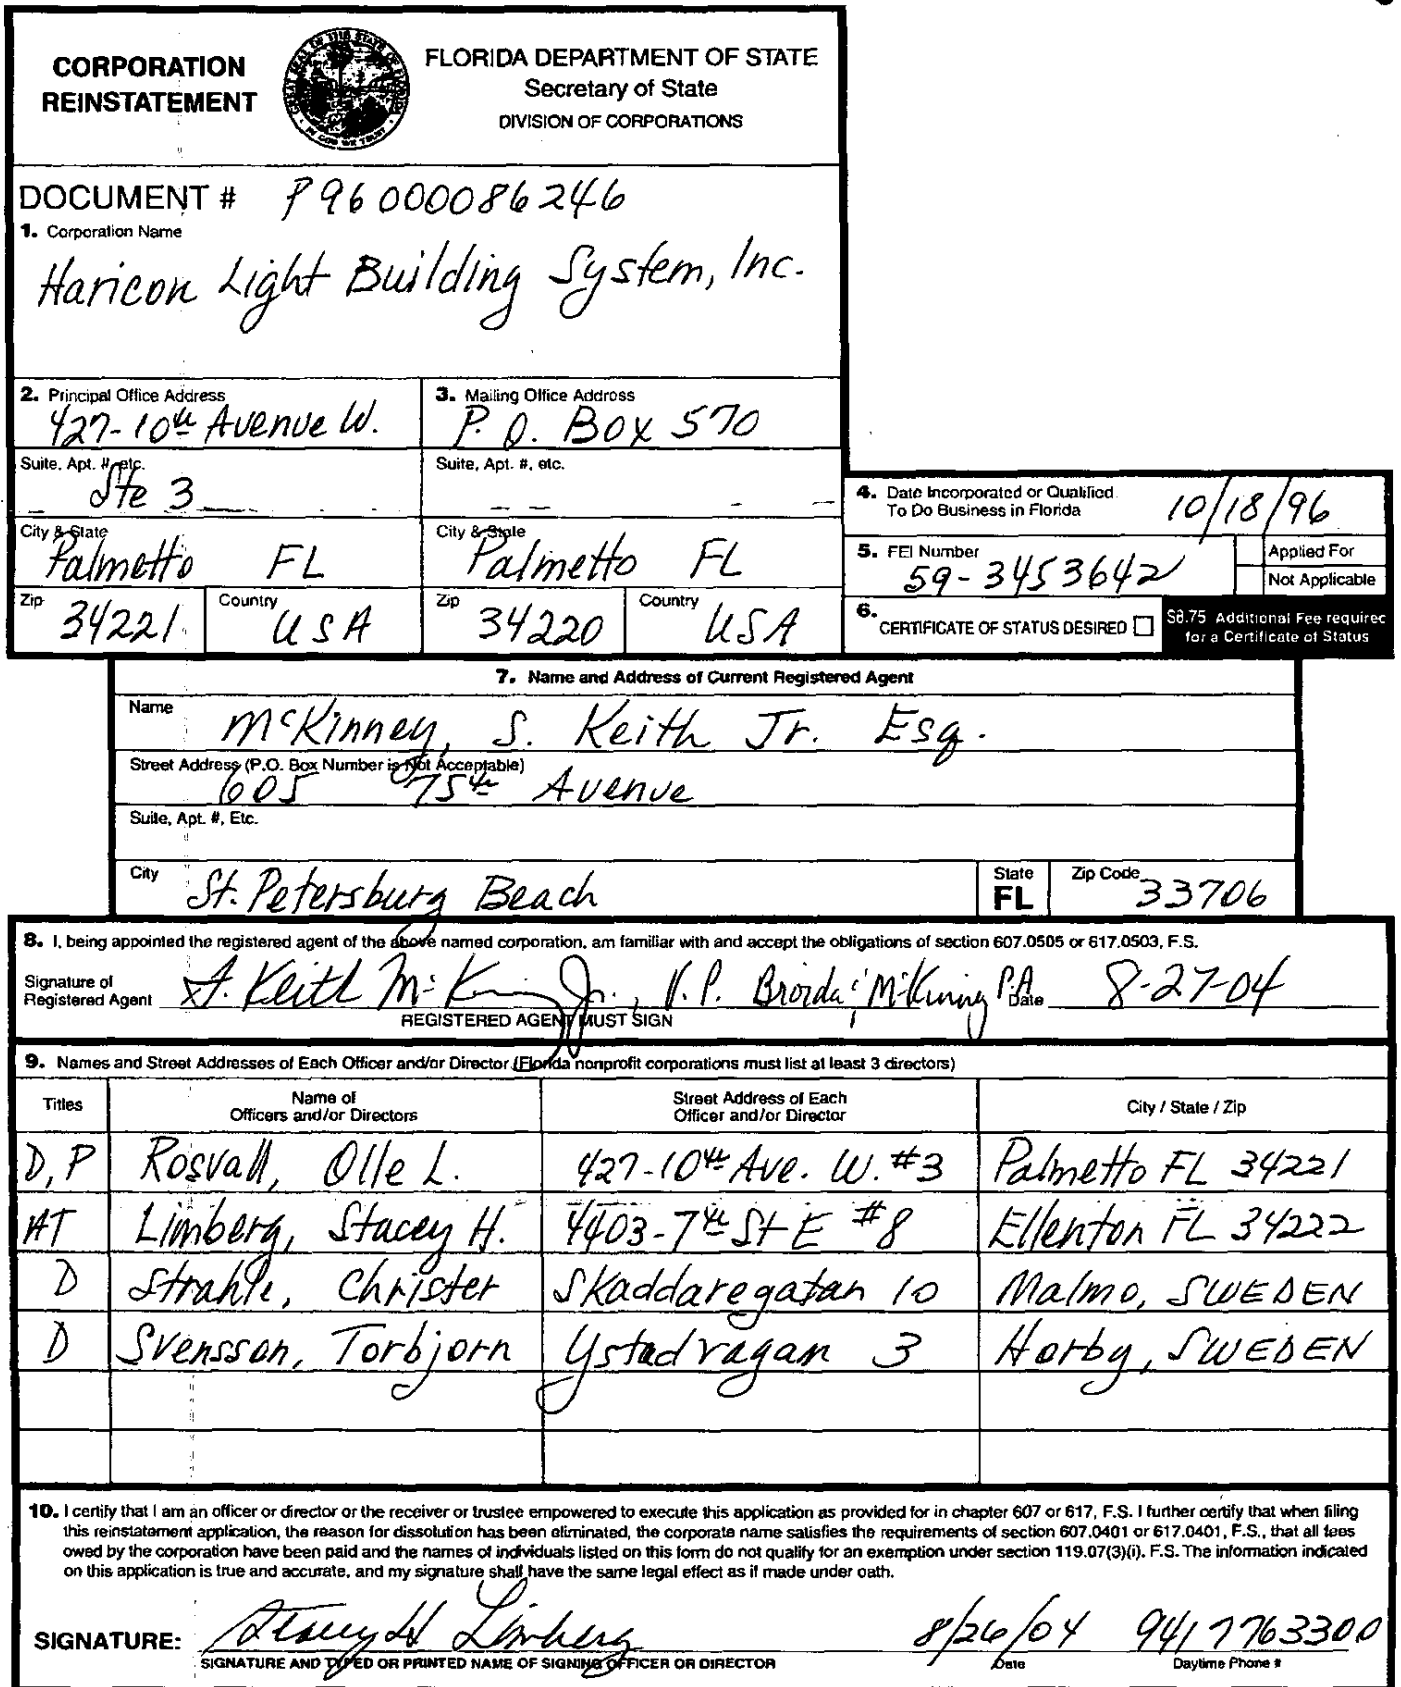 CORPORATION
REINSTATEMENT
FLORIDA DEPARTMENT OF STATE
Secretary of State
DIVISION OF CORPORATIONS
DOCUMENT # P96000086246
1. Corporation Name
Haricon Light Building System, Inc.
2. Principal Office Address
427-10th Avenue W.
3. Mailing Office Address
P.O. Box 570
Suite, Apt. #, etc.
Ste 3
Suite, Apt. #, etc.
City & State
Palmetto FL
City & State
Palmetto FL
Zip
34221
Country
USA
Zip
34220
Country
USA
4. Date Incorporated or Qualified
To Do Business in Florida
10/18/96
5. FEI Number
59-3453642
Applied For
Not Applicable
6. CERTIFICATE OF STATUS DESIRED
$8.75 Additional Fee required
for a Certificate of Status
7. Name and Address of Current Registered Agent
Name
McKinney, S. Keith Jr. Esq.
Street Address (P.O. Box Number is Not Acceptable)
605 75th Avenue
Suite, Apt. #, Etc.
City
St. Petersburg Beach
State
FL
Zip Code
33706
8. I, being appointed the registered agent of the above named corporation, am familiar with and accept the obligations of section 607.0505 or 617.0503, F.S.
Signature of
Registered Agent
S. Keith McKinney Jr., V.P. McKinney P.A.
Date
8-27-04
REGISTERED AGENT MUST SIGN
9. Names and Street Addresses of Each Officer and/or Director (Florida nonprofit corporations must list at least 3 directors)
Titles
Name of
Officers and/or Directors
Street Address of Each
Officer and/or Director
City / State / Zip
D, P Rosvall, Olle L. 427-10th Ave. W. #3 Palmetto FL 34221
AT Limberg, Stacey H. 4403-7th St E #8 Ellenton FL 34222
D Strahle, Christer Skaddaregatan 10 Malmo, SWEDEN
D Svensson, Torbjorn Ystadvagan 3 Horby, SWEDEN
10. I certify that I am an officer or director or the receiver or trustee empowered to execute this application as provided for in chapter 607 or 617, F.S. I further certify that when filing
this reinstatement application, the reason for dissolution has been eliminated, the corporate name satisfies the requirements of section 607.0401 or 617.0401, F.S., that all fees
owed by the corporation have been paid and the names of individuals listed on this form do not qualify for an exemption under section 119.07(3)(i), F.S. The information indicated
on this application is true and accurate, and my signature shall have the same legal effect as if made under oath.
SIGNATURE: Stacey H Limberg 8/26/04 941 7763300
SIGNATURE AND TYPED OR PRINTED NAME OF SIGNING OFFICER OR DIRECTOR
Date
Daytime Phone #